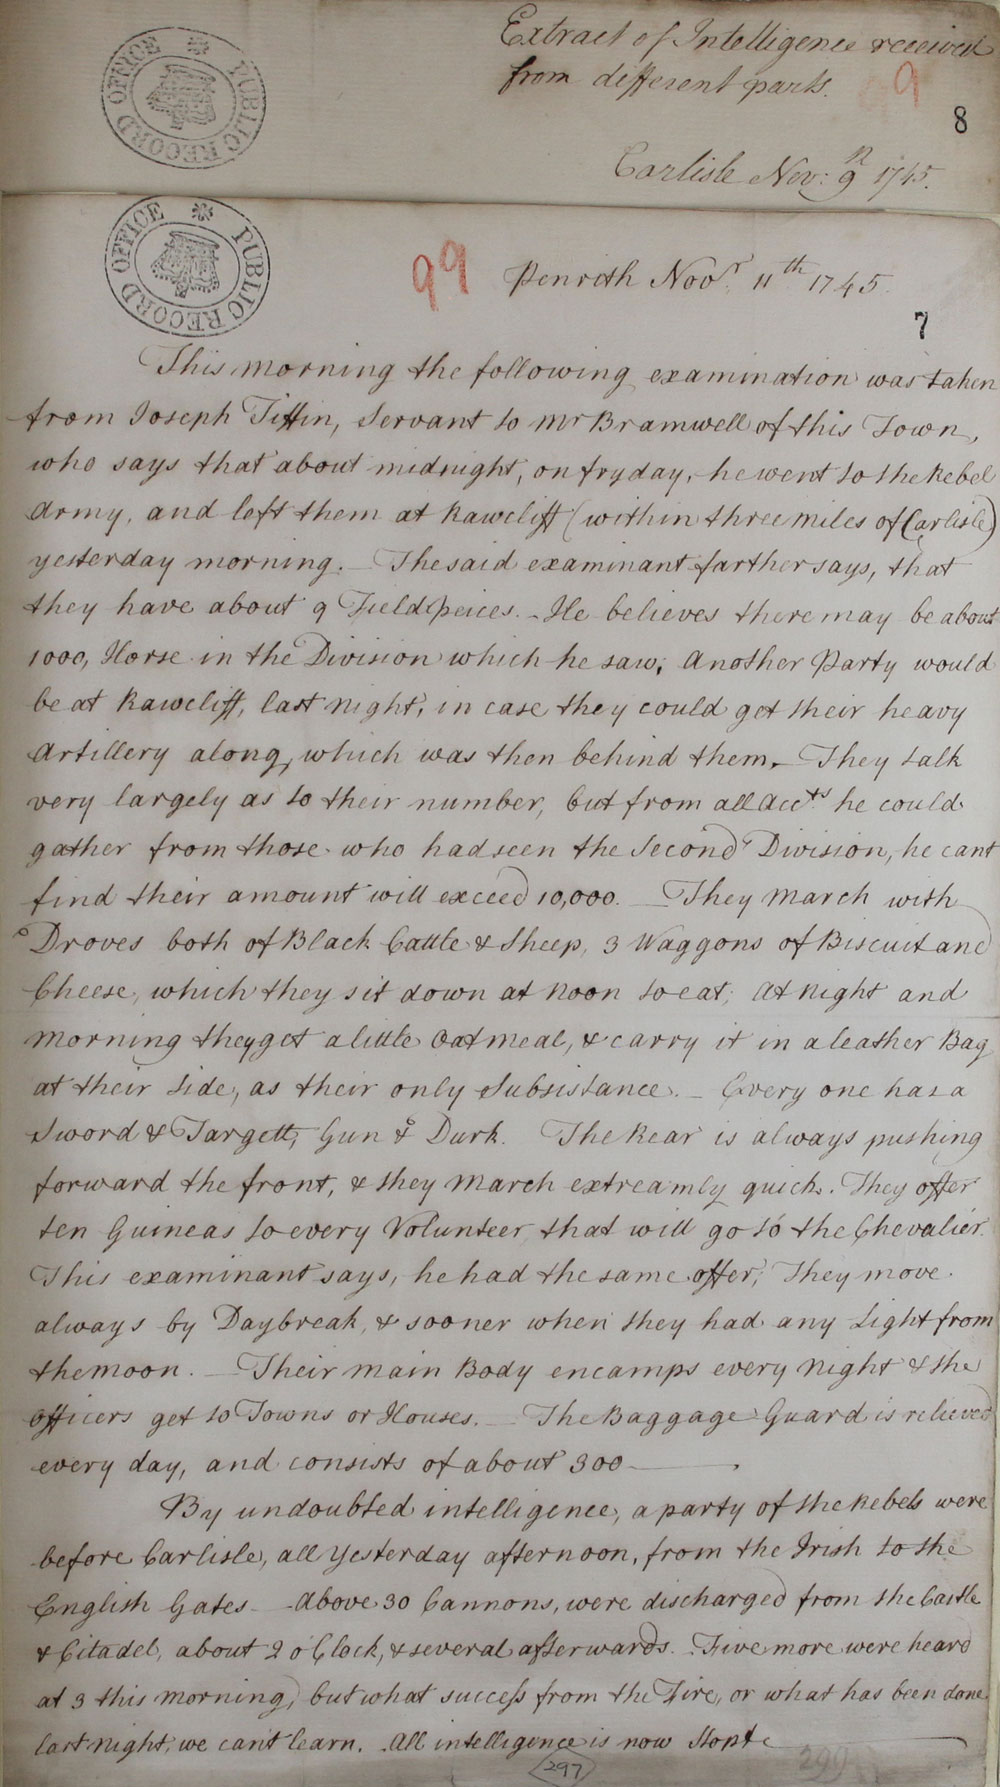 Extract of Intelligence received
from different parts.
9
8
Carlisle Nov: 9 1745.
PUBLIC RECORD OFFICE
PUBLIC RECORD OFFICE
99
Penrith Novr. 11th 1745.
7
This morning the following examination was taken
from Joseph Tiffin, Servant to Mr Bramwell of this Town,
who says that about midnight, on fryday, he went to the Rebel
Army, and left them at Rawcliff (within three miles of Carlisle)
yesterday morning. — The said examinant farther says, that
they have about 9 Field peices. – He believes there may be about
1000, Horse in the Division which he saw; Another Party would
be at Rawcliff, last night, in case they could get their heavy
Artillery along, which was then behind them. – They talk
very largely as to their number, but from all Accts. he could
gather from those who had seen the Second Division, he cant
find their amount will exceed 10,000. — They March with
Droves both of Black Cattle & Sheep, 3 Waggons of Biscuit and
Cheese, which they sit down at Noon to eat; At Night and
Morning they get a little Oatmeal, & carry it in a leather Bag
at their Side, as their only Subsistance. – Every one has a
Sword & Targett, Gun & Durk. The Rear is always pushing
forward the front, & they March extreamly quick. They offer
ten Guineas to every Volunteer that will go to the Chevalier.
This examinant says, he had the same offer; They move
always by Daybreak, & sooner when they had any Light from
the moon. — Their main Body encamps every Night & the
Officers get to Towns or Houses. — The Baggage Guard is relieved
every day, and consists of about 300 —
By undoubted intelligence, a party of the Rebels were
before Carlisle, all Yesterday afternoon, from the Irish to the
English Gates – Above 30 Cannons, were discharged from the Castle
& Citadel, about 2 o'Clock, & several afterwards. – Five more were heard
at 3 this morning, but what success from the Fire, or what has been done
last night, we can't learn. All intelligence is now Stopt
297
299